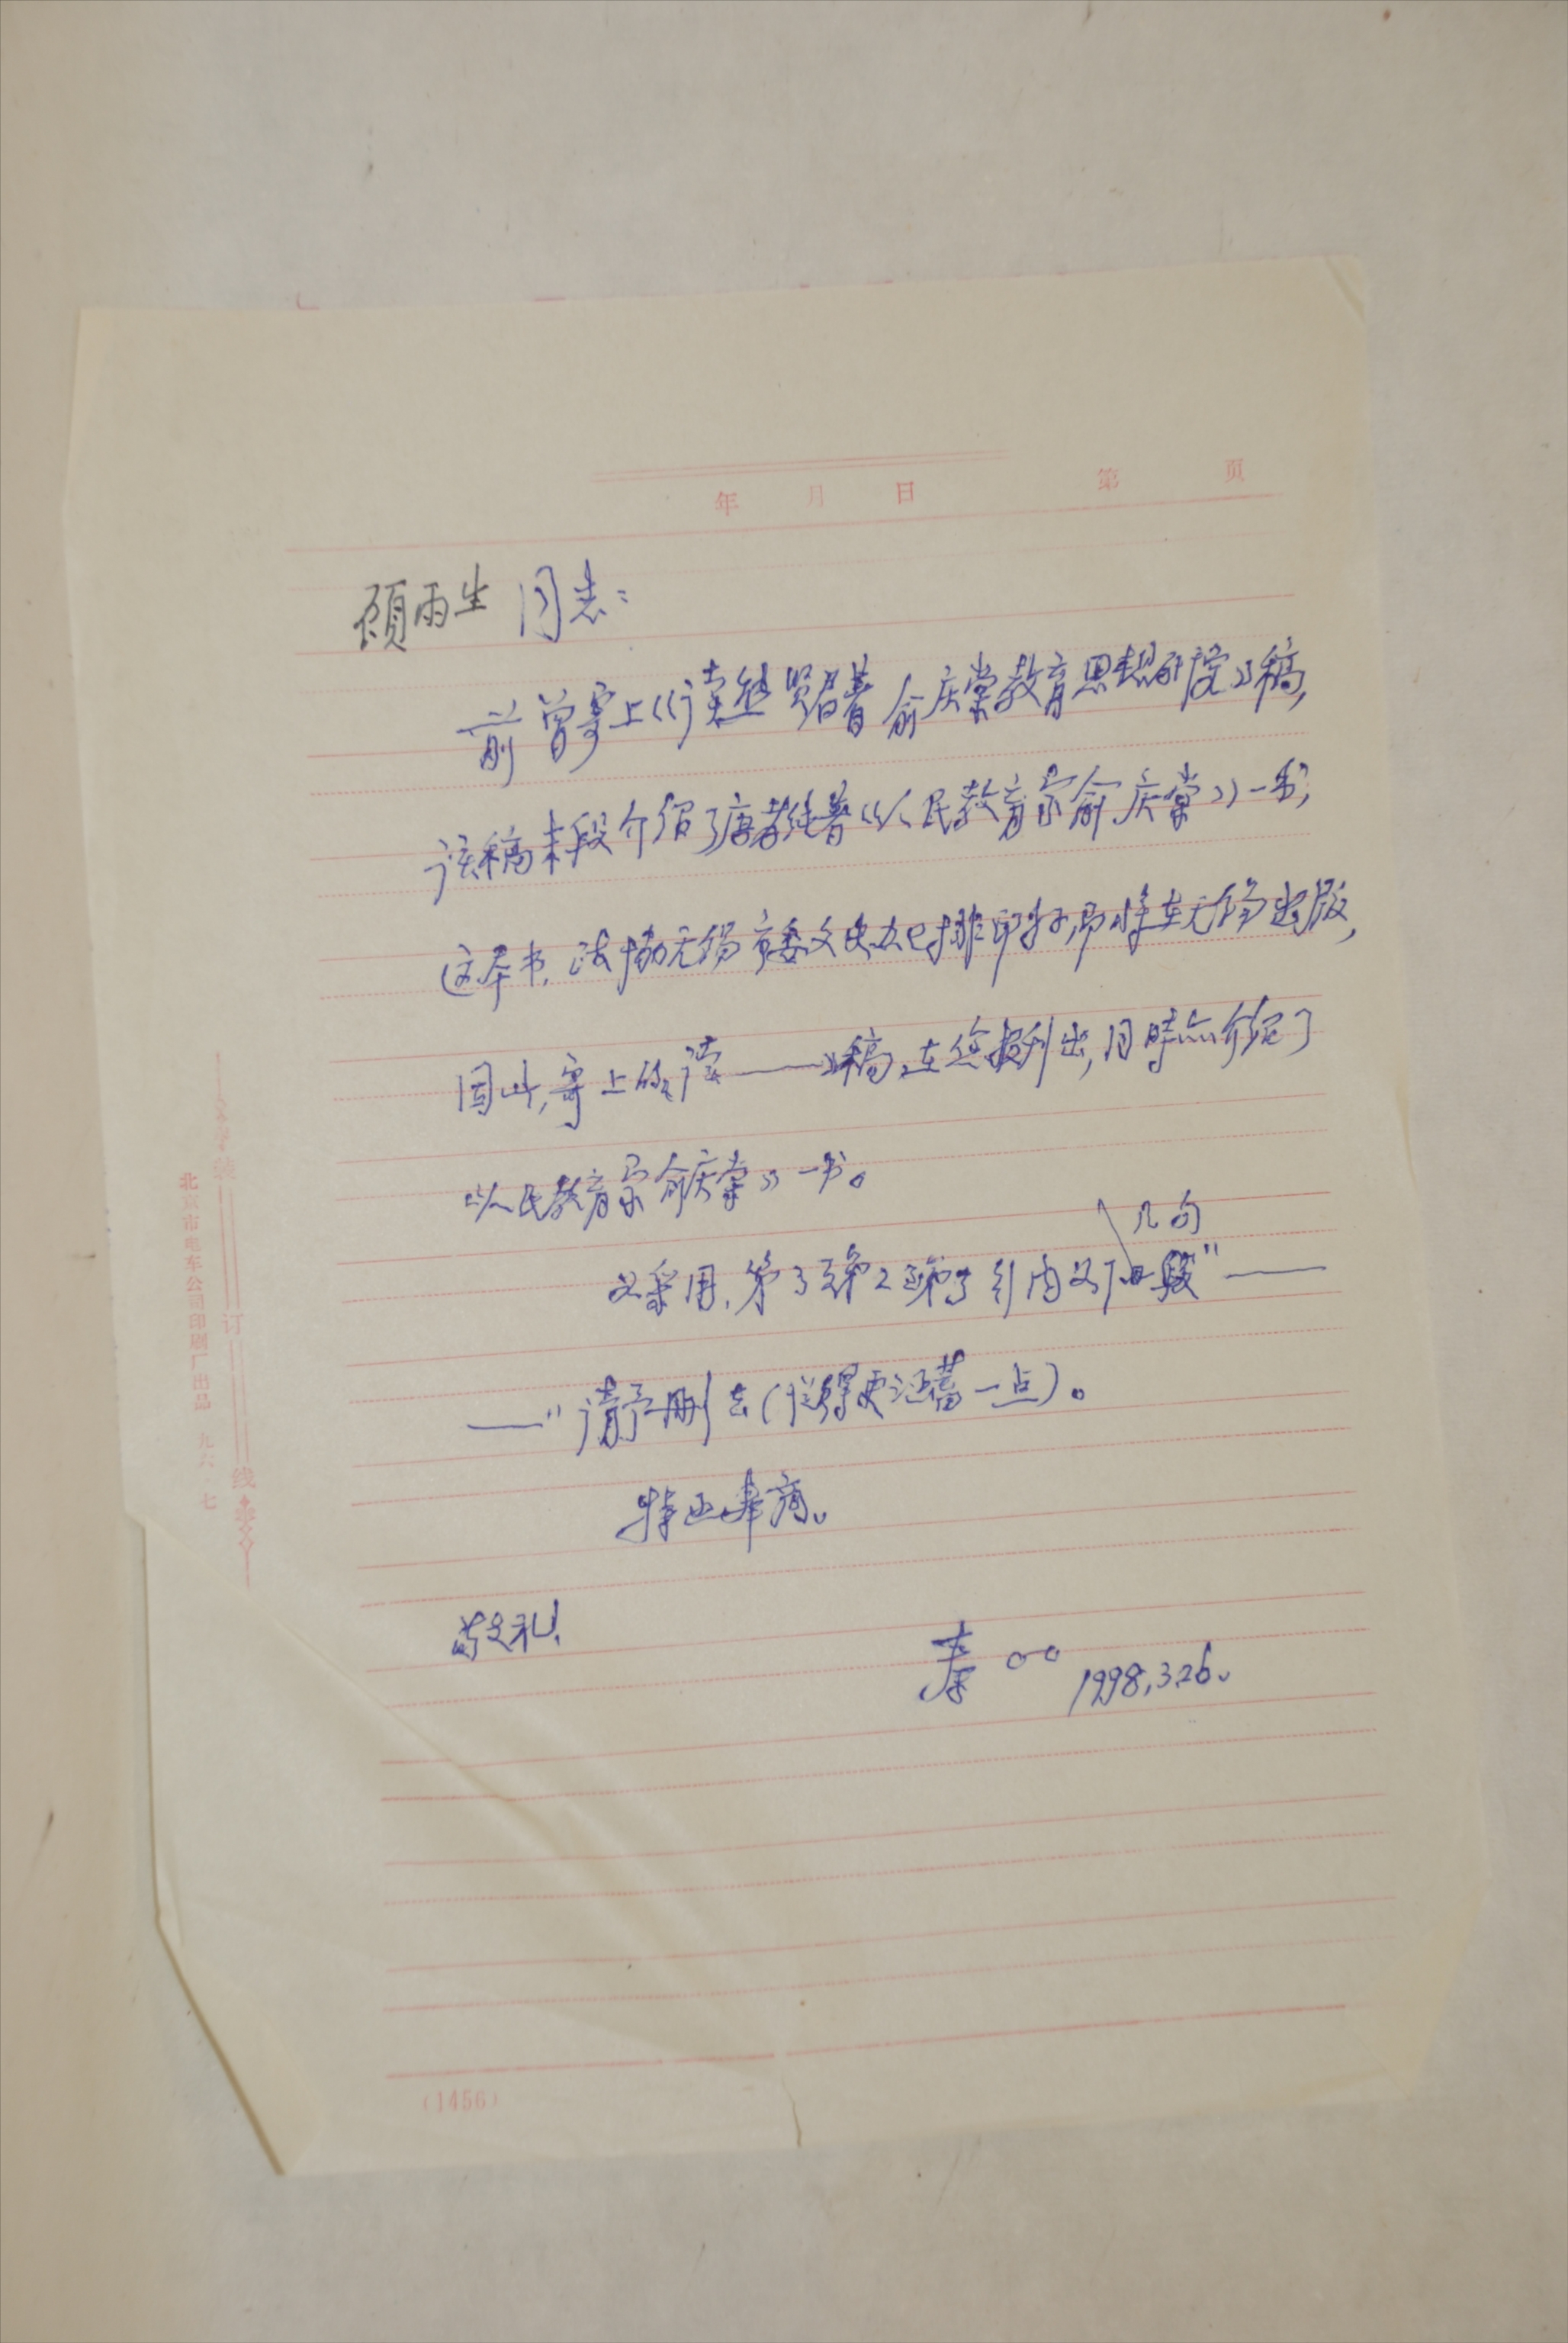 年 月 日 第 页
顾雨生 同志：
前曾寄上《读熊贤君著俞庆棠教育思想研究》稿，
该稿末段介绍了唐孝纯著《人民教育家俞庆棠》一书，
这本书，政协无锡市委文史办已排印好，即将在无锡出版，
因此，寄上的《读——》稿，在您报刊出，同时亦介绍了
《人民教育家俞庆棠》一书。
几句
如采用，第3页第2 引 内
——"请予删去（ 得更涵蓄一点）。
特函奉商。
敬礼！
秦○○ 1998.3.26.
装
订
线
北京市电车公司印刷厂出品 九六·七
(1456)